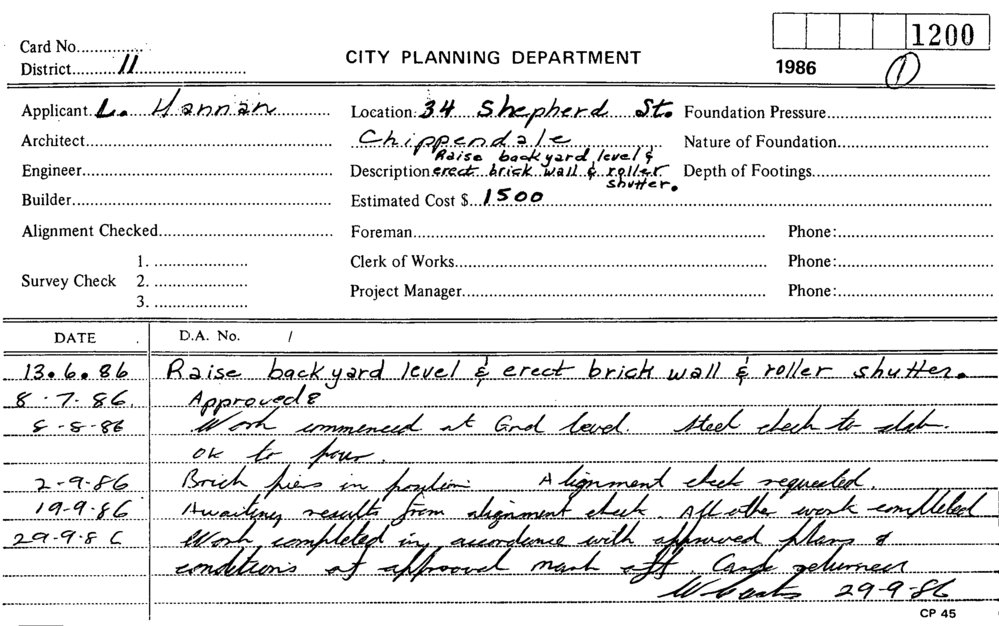 Card No...............
1200
District.........11........................
CITY PLANNING DEPARTMENT
1986
1
Applicant L. Hannan
Location: 34 Shepherd St.
Foundation Pressure
Architect
Chippendale
Nature of Foundation
Raise backyard level &
Engineer
Description erect brick wall & roller
Depth of Footings
shutter.
Builder
Estimated Cost $ 1500
Alignment Checked
Foreman
Phone:
1.
Clerk of Works
Phone:
Survey Check 2.
Project Manager
Phone:
3.
DATE D.A. No. /
13.6.86 Raise backyard level & erect brick wall & roller shutter.
8-7-86. Approved
8-8-86 Work commenced at Gnd level. Steel check to slab.
OK to pour.
2-9-86 Brick piers in position Alignment check requested.
19-9-86 Awaiting results from alignment check. All other work completed
29-9-86 Work completed in accordance with approved plans &
conditions of approval Card returned
29-9-86
CP 45